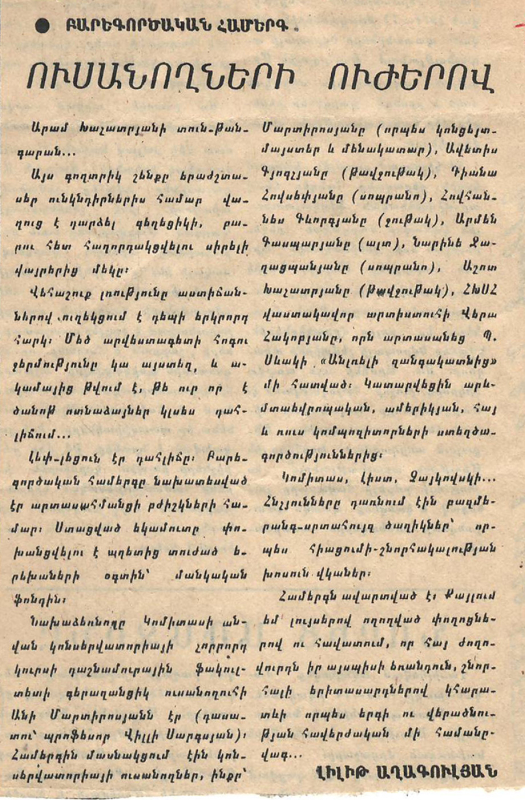 ● ԲԱՐԵԳՈՐԾԱԿԱՆ ՀԱՄԵՐԳ
ՈՒՍԱՆՈՂՆԵՐԻ ՈՒԺԵՐՈՎ
Արամ Խաչատրյանի տուն-թան-
գարան...
Այս գողտրիկ շենքը երաժշտա-
սեր ունկնդիրներիս համար վա-
ղուց է դարձել գեղեցիկի, բա-
րու հետ հաղորդակցվելու սիրելի
վայրերից մեկը։
Վեհաշուք լռությունը աստիճան-
ներով ուղեկցում է դեպի երկրորդ
հարկ։ Մեծ արվեստագետի հոգու
ջերմությունը կա այստեղ և ա-
կամայից թվում է, թե ուր որ է
ծանոթ ոտնաձայներ կլսես դահ-
լիճում...
Լեփ-լեցուն էր դահլիճը։ Բարե-
գործական համերգը նախատեսված
էր արտասահմանցի բժիշկների հա-
մար։ Ստացված եկամուտը փո-
խանցվելու է աղետից տուժած ե-
րեխաների օգտին՝ մանկական
ֆոնդին։
Նախաձեռնողը Կոմիտասի ան-
վան կոնսերվատորիայի չորրորդ
կուրսի դաշնամուրային ֆակուլ-
տետի գերազանցիկ ուսանողուհի
Անի Մարտիրոսյանն էր (դասա-
տու՝ պրոֆեսոր Վիլլի Սարգսյան)։
Համերգին մասնակցում էին կոն-
սերվատորիայի ուսանողներ, ինքը՝
Մարտիրոսյանը (որպես կոնցերտ-
մայստեր և մենակատար), Ավետիս
Գյոզլյանը (թավջութակ), Դիանա
Հովսեփյանը (սոպրանո), Հովհան-
նես Գևորգյանը (ջութակ), Արմեն
Գասպարյանը (ալտ), Նարինե Ջա-
ղացպանյանը (սոպրանո), Աշոտ
Խաչատրյանը (թավջութակ), ՀԽՍՀ
վաստակավոր արտիստուհի Վերա
Հակոբյանը, որն արտասանեց Պ.
Սևակի «Անլռելի զանգակատնից»
մի հատված։ Կատարվեցին արև-
մտաեվրոպական, ամերիկյան, հայ
և ռուս կոմպոզիտորների ստեղծա-
գործություններից։
Կոմիտաս, Լիստ, Չայկովսկի...
Հնչյունները դառնում էին բազմե-
րանգ-արտահույզ ծաղիկներ՝ որ-
պես հիացումի-շնորհակալության
խոսուն վկաներ։
Համերգն ավարտված է։ Քայլում
եմ լույսերով ողողված փողոցնե-
րով ու հավատում, որ հայ ժողո-
վուրդն իր այսպիսի եռանդուն, շնոր-
հալի երիտասարդներով կհարա-
տևի որպես երգի ու վերածնու-
թյան հավերժական մի համանը-
վագ...
ԼԻԼԻԹ ԱՂԱԳՈՒԼՅԱՆ